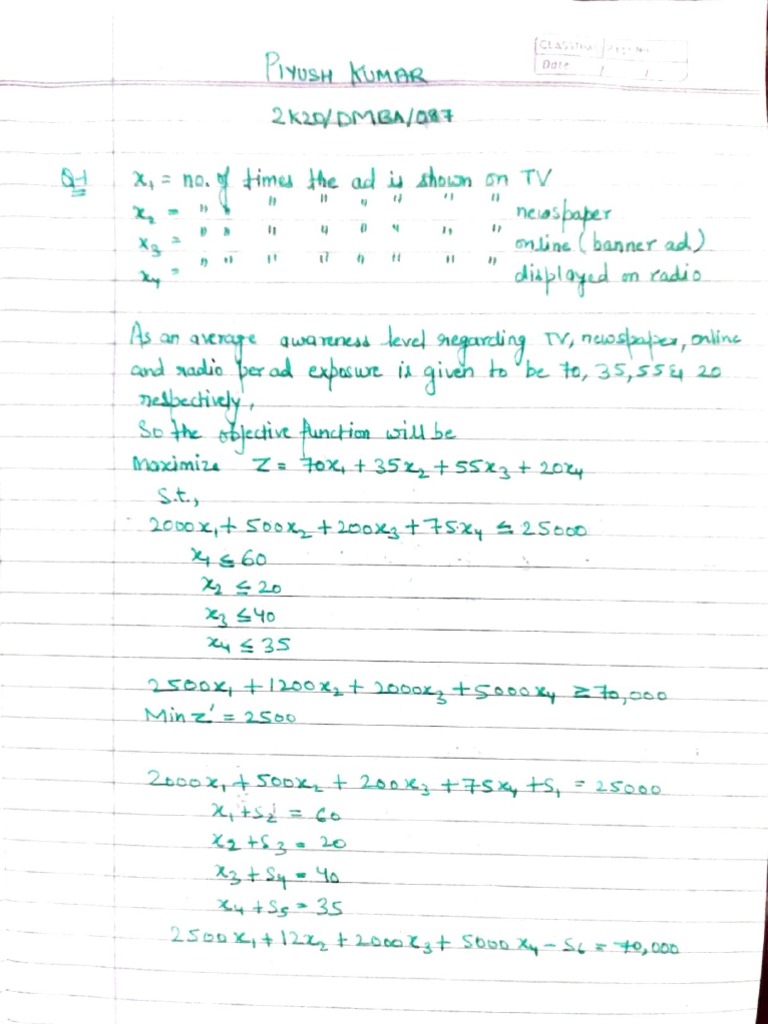 CLASSTIME Page No.
Date / /
PIYUSH KUMAR
2K20/DMBA/087
Q-1 x₁ = no. of times the ad is shown on TV
x₂ = " " " " " " " " newspaper
x₃ = " " " " " " " " online (banner ad)
x₄ = " " " " " " " " displayed on radio
As an average awareness level regarding TV, newspaper, online
and radio per ad exposure is given to be 70, 35, 55 & 20
respectively,
So the objective function will be
Maximize Z = 70x₁ + 35x₂ + 55x₃ + 20x₄
S.t.,
2000x₁ + 500x₂ + 200x₃ + 75x₄ ≤ 25000
x₁ ≤ 60
x₂ ≤ 20
x₃ ≤ 40
x₄ ≤ 35
2500x₁ + 1200x₂ + 2000x₃ + 5000x₄ ≥ 70,000
Min z' = 2500
2000x₁ + 500x₂ + 200x₃ + 75x₄ + S₁ = 25000
x₁ + S₂ = 60
x₂ + S₃ = 20
x₃ + S₄ = 40
x₄ + S₅ = 35
2500x₁ + 12x₂ + 2000x₃ + 5000x₄ - S₆ = 70,000